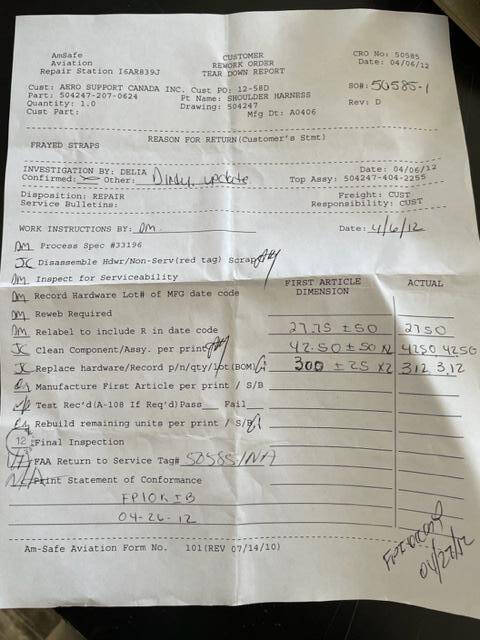 AmSafe CUSTOMER CRO No: 50585
Aviation REWORK ORDER Date: 04/06/12
Repair Station I6AR839J TEAR DOWN REPORT
Cust: AERO SUPPORT CANADA INC. Cust PO: 12-58D SO#: 50585-1
Part: 504247-207-0624 Pt Name: SHOULDER HARNESS
Quantity: 1.0 Drawing: 504247 Rev: D
Cust Part: Mfg Dt: A0406
REASON FOR RETURN(Customer's Stmt)
FRAYED STRAPS
INVESTIGATION BY: DELIA Date: 04/06/12
Confirmed: Other: Dirty, update Top Assy: 504247-404-2255
Disposition: REPAIR Freight: CUST
Service Bulletins: Responsibility: CUST
WORK INSTRUCTIONS BY: DM Date: 4/6/12
DM Process Spec #33196
JC Disassemble Hdwr/Non-Serv(red tag) Scrap
DM Inspect for Serviceability
DM Record Hardware Lot# of MFG date code FIRST ARTICLE DIMENSION ACTUAL
DM Reweb Required
DM Relabel to include R in date code 27.75 ±50 2750
JC Clean Component/Assy. per print 42.50 ±50 X2 4250 4250
JC Replace hardware/Record p/n/qty/lot(BOM) 300 ±25 X2 312 312
Manufacture First Article per print / S/B
Test Rec'd(A-108 If Req'd)Pass__ Fail__
Rebuild remaining units per print / S/B
12 Final Inspection
FAA Return to Service Tag# 50585/NA
Print Statement of Conformance
FPIOK IB
04-26-12
04/27/12
Am-Safe Aviation Form No. 101(REV 07/14/10)